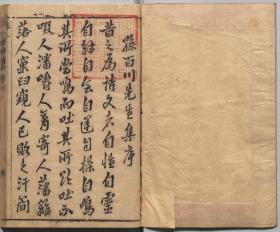 孫百川先生集序
昔之為詩文者自性自靈
自號自命自運自操自鳴
其所當鳴而吐其所欲吐不
啜人瀋嚼人胾寄人藩籬
落人窠臼窺人已敗之汗簡